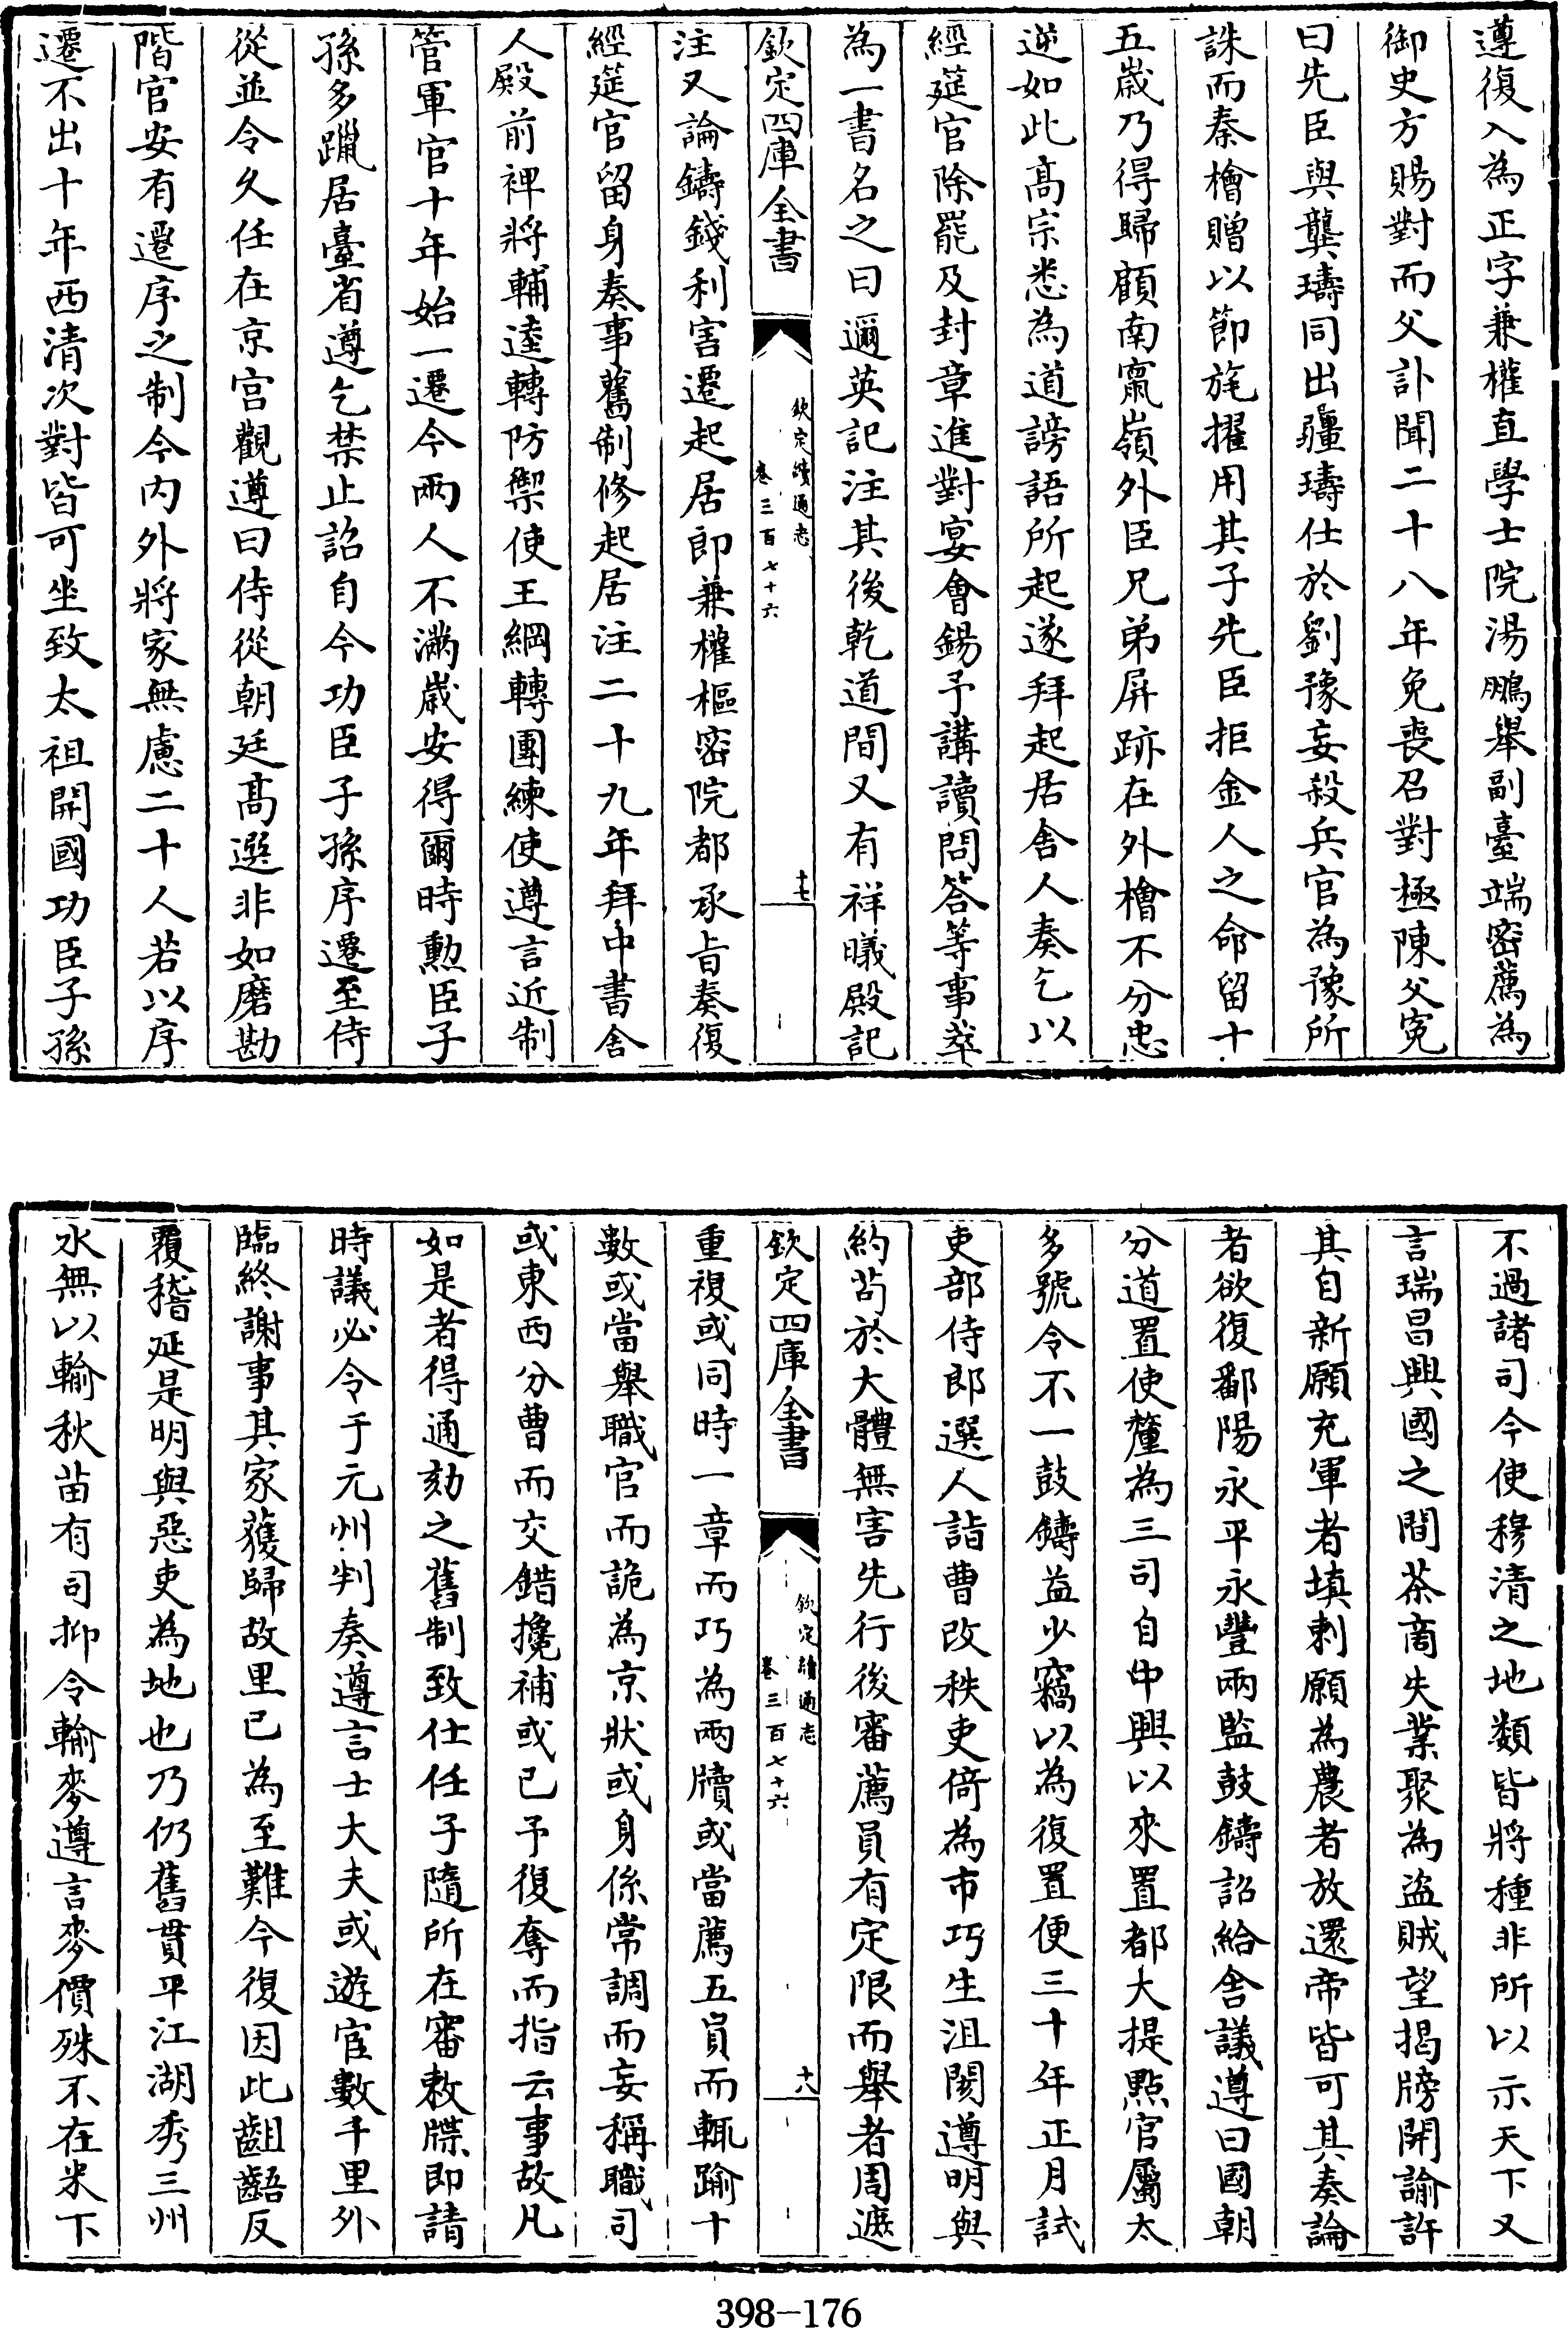 遵復入為正字兼權直學士院湯鵬舉副臺端密薦為
御史方賜對而父訃聞二十八年免喪召對極陳父寃
曰先臣與龔璹同出疆璹仕於劉豫妄殺兵官為豫所
誅而秦檜贈以節旄擢用其子先臣拒金人之命留十
五歲乃得歸顧南竄嶺外臣兄弟屏跡在外檜不分忠
逆如此高宗悉為道謗語所起遂拜起居舍人奏乞以
經筵官除罷及封章進對宴會錫予講讀問答等事萃
為一書名之曰邇英記注其後乾道間又有祥曦殿記
欽定四庫全書
欽定續通志
卷三百七十六
十七
注又論鑄錢利害遷起居郎兼權樞密院都承旨奏復
經筵官留身奏事舊制修起居注二十九年拜中書舍
人殿前裨將輔逵轉防禦使王綱轉團練使遵言近制
管軍官十年始一遷今兩人不滿歲安得爾時勲臣子
孫多躐居臺省遵乞禁止詔自今功臣子孫序遷至侍
從並令久任在京宮觀遵曰侍從朝廷高選非如磨勘
階官安有遷序之制今內外將家無慮二十人若以序
遷不出十年西清次對皆可坐致太祖開國功臣子孫
不過諸司今使穆清之地類皆將種非所以示天下又
言瑞昌興國之間茶商失業聚為盜賊望揭牓開諭許
其自新願充軍者填刺願為農者放還帝皆可其奏論
者欲復鄱陽永平永豐兩監鼓鑄詔給舍議遵曰國朝
分道置使釐為三司自中興以來置都大提點官屬太
多號令不一鼓鑄益少竊以為復置便三十年正月試
吏部侍郎選人詣曹改秩吏倚為市巧生沮閡遵明與
約茍於大體無害先行後審薦員有定限而舉者周遮
欽定四庫全書
欽定續通志
卷三百七十六
十八
重複或同時一章而巧為兩牘或當薦五員而輒踰十
數或當舉職官而詭為京狀或身係常調而妄稱職司
或東西分曹而交錯攙補或已予復奪而指云事故凡
如是者得通劾之舊制致仕任子隨所在審敕牒即請
時議必令于元州判奏遵言士大夫或遊宦數千里外
臨終謝事其家獲歸故里已為至難今復因此齟齬反
覆稽延是明與惡吏為地也乃仍舊貫平江湖秀三州
水無以輸秋苗有司抑令輸麥遵言麥價殊不在米下
398-176